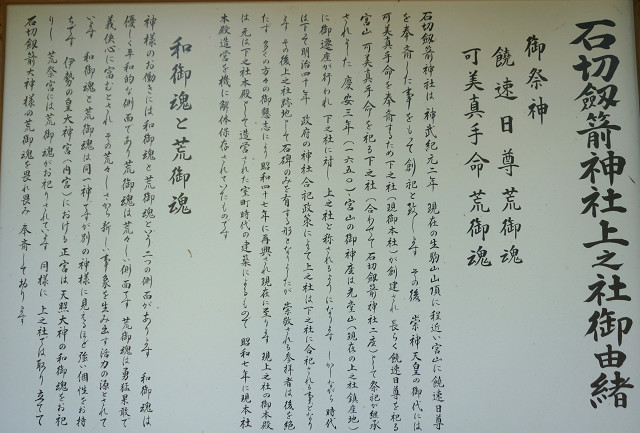 石切劔箭神社上之社御由緒
御祭神
饒速日尊荒御魂
可美真手命荒御魂
石切劔箭神社は 神武紀元二年 現在の生駒山山頂に程近い宮山に饒速日尊
を奉斎した事をもって創祀と致します その後 崇神天皇の御代には
可美真手命を奉斎するため下之社（現御本社）が創建され 長らく饒速日尊を祀る
宮山 可美真手命を祀る下之社（合わせて石切劔箭神社二座）として祭祀が継承
されました 慶安三年（一六五〇）宮山の御神座は光堂山（現在の上之社鎮座地）
に御遷座が行われ 下之社に対し 上之社と称されるようになります しかしながら時代
は下って明治四十年 政府の神社合祀政策によって上之社は下之社に合祀される事となり
ます その後上之社跡地として石碑のみを有する形となりましたが 崇敬される参拝者は後を絶
たず 多くの方々の御懇志により 昭和四十七年に再興され現在に至ります 現上之社の御本殿
は元は下之社本殿として造営された室町時代の建築によるもので 昭和七年に現本社
本殿造営を機に解体保存されていたものです
和御魂と荒御魂
神様のお働きには和御魂と荒御魂という二つの側面があります 和御魂は
優しく平和的な側面であり 荒御魂は荒々しい側面です 荒御魂は勇猛果敢で
義侠心に富むとされ その荒々しさから新しい事象を生み出す活力の源とされて
います 和御魂と荒御魂は同一神ですが別の神様に見えるほど強い個性をお持
ちです 伊勢の皇大神宮（内宮）における正宮は天照大神の和御魂をお祀
りし 荒祭宮には荒御魂がお祀りされています 同様に 上之社では取り立てて
石切劔箭大神様の荒御魂を畏れ畏み 奉斎して居ります